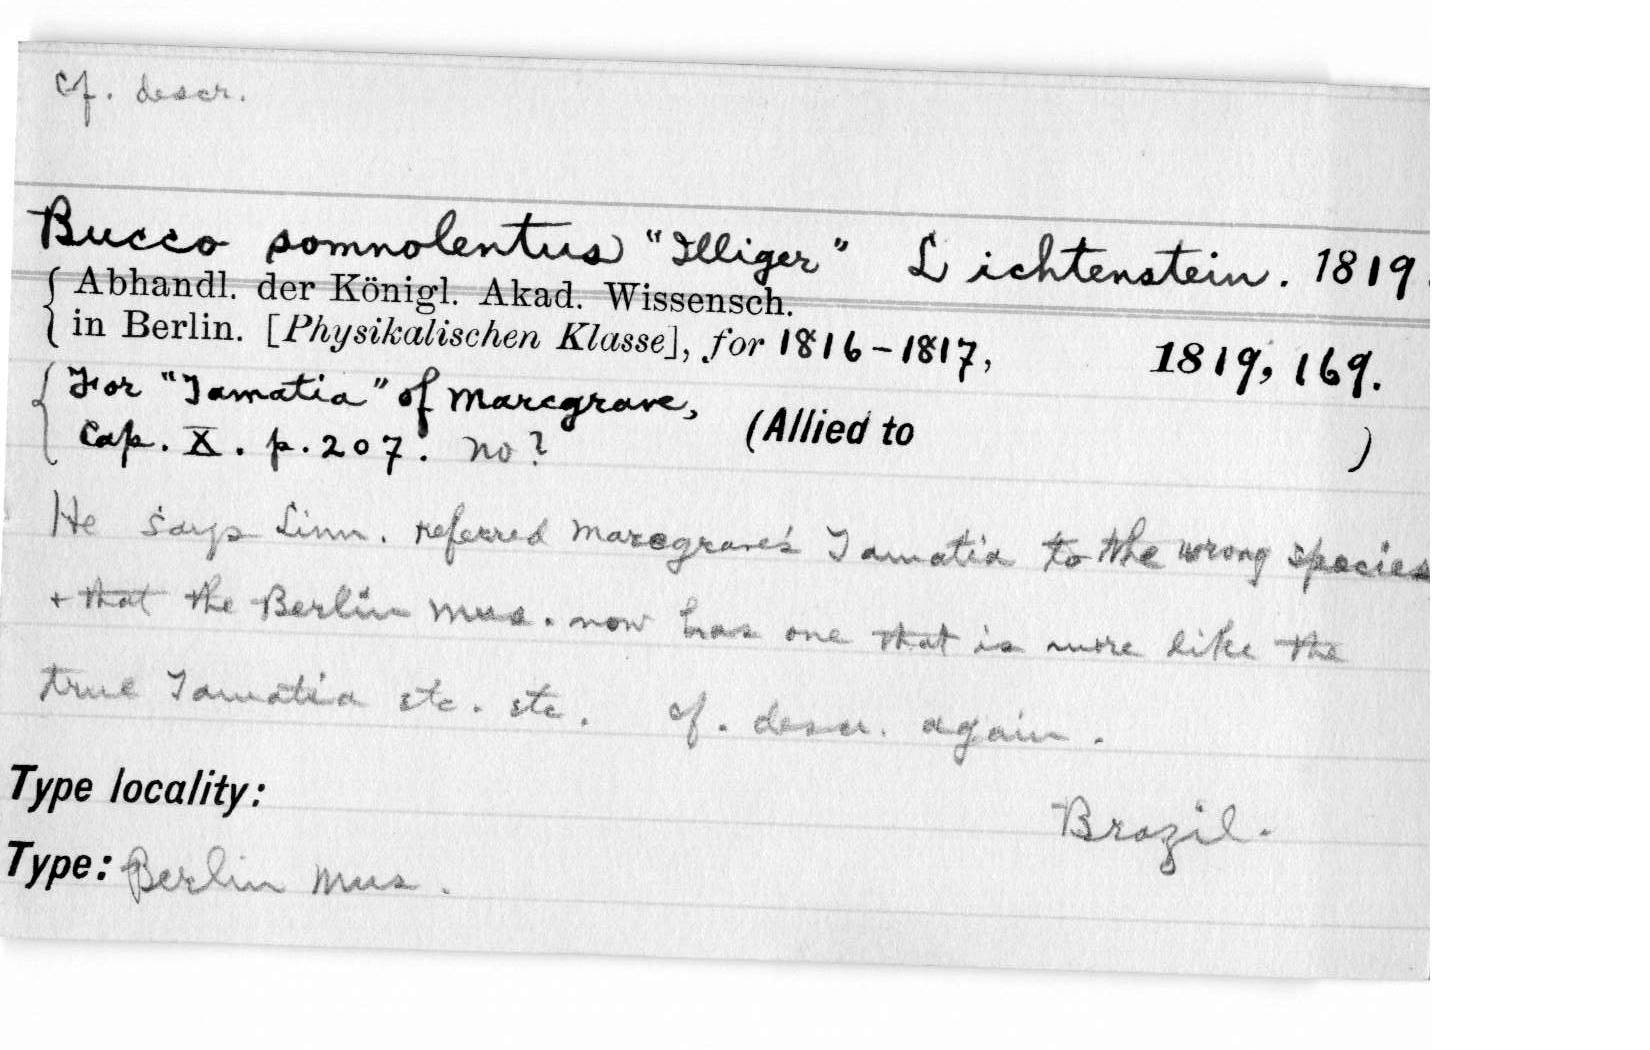 cf. descr.
Bucco somnolentus "Illiger" Lichtenstein. 1819.
Abhandl. der Königl. Akad. Wissensch.
in Berlin. [Physikalischen Klasse], for 1816-1817, 1819, 169.
For "Tamatia" of Marcgrave,
Cap. X. p. 207. no? (Allied to )
He says Linn. referred Marcgrave's Tamatia to the wrong species
+ that the Berlin Mus. now has one that is more like the
true Tamatia etc. etc. cf. descr. again.
Type locality: Brazil.
Type: Berlin Mus.